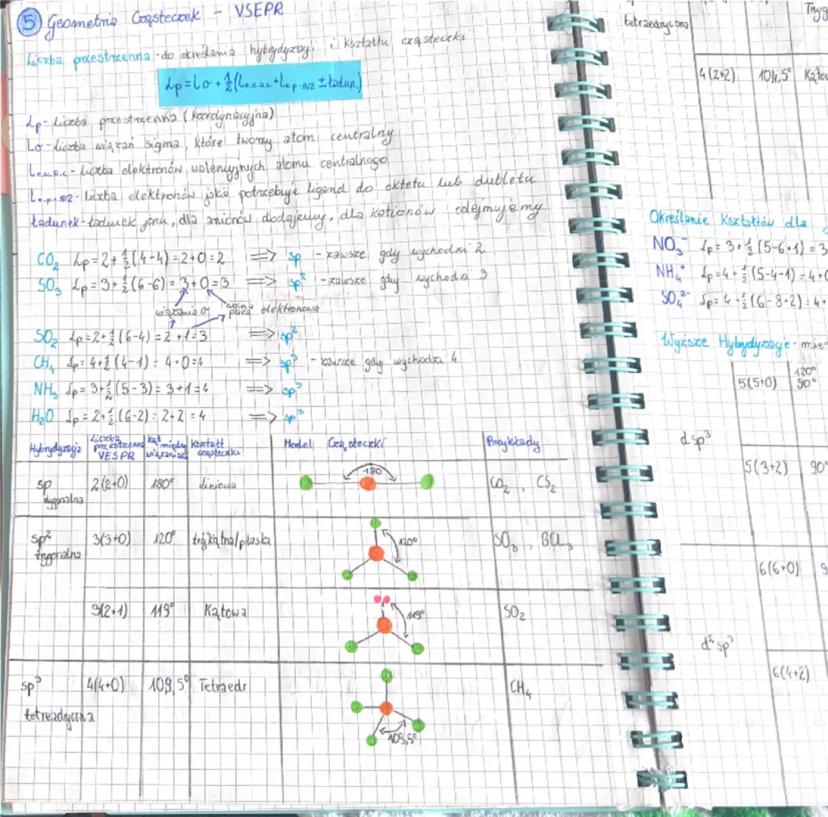 5 Geometria Cząsteczek - VSEPR
Liczba przestrzenna - do określania hybrydyzacji i kształtu cząsteczki
Lp = Lσ + ½(Le.wal. + Le.p.8/2 ± ładun.)
Lp - liczba przestrzenna (koordynacyjna)
Lσ - liczba wiązań sigma, które tworzy atom centralny
Le.wal. - liczba elektronów walencyjnych atomu centralnego
Le.p.8/2 - liczba elektronów jakie potrzebuje ligand do oktetu lub dubletu
Ładunek - ładunek jonu, dla anionów dodajemy, dla kationów odejmujemy
CO₂ Lp = 2 + ½(4-4) = 2+0 = 2 ⟹ sp - zawsze gdy wychodzi 2
SO₃ Lp = 3 + ½(6-6) = 3+0 = 3 ⟹ sp² - zawsze gdy wychodzi 3
wiązania σ elektronowa
SO₂ Lp = 2 + ½(6-4) = 2+1 = 3 ⟹ sp²
CH₄ Lp = 4 + ½(4-4) = 4+0 = 4 ⟹ sp³ - zawsze gdy wychodzi 4
NH₃ Lp = 3 + ½(5-3) = 3+1 = 4 ⟹ sp³
H₂O Lp = 2 + ½(6-2) = 2+2 = 4 ⟹ sp³
Hybrydyzacja Liczba przestrzenna VESPR Kąt między wiązaniami Kształt cząsteczki Model Cząsteczki Przykłady
sp dygonalna 2(2+0) 180° liniowa 180 CO₂, CS₂
sp² trygonalna 3(3+0) 120° trójkątna/płaska 120° SO₃, BCl₃
3(2+1) 119° Kątowa 119° SO₂
sp³ tetraedryczna 4(4+0) 109,5° Tetraedr 109,5° CH₄
tetraedryczna
4(2+2) 104,5°
Określanie Kształtów dla
NO₃⁻ Lp = 3 + ½(5-6+1) = 3
NH₄⁺ Lp = 4 + ½(5-4-1) = 4+
SO₄²⁻ Lp = 4 + ½(6-8+2) = 4+
Wyższe Hybrydyzacje -
5(5+0) 120° 90°
dsp³
5(3+2) 90°
6(6+0)
d²sp³
6(4+2)